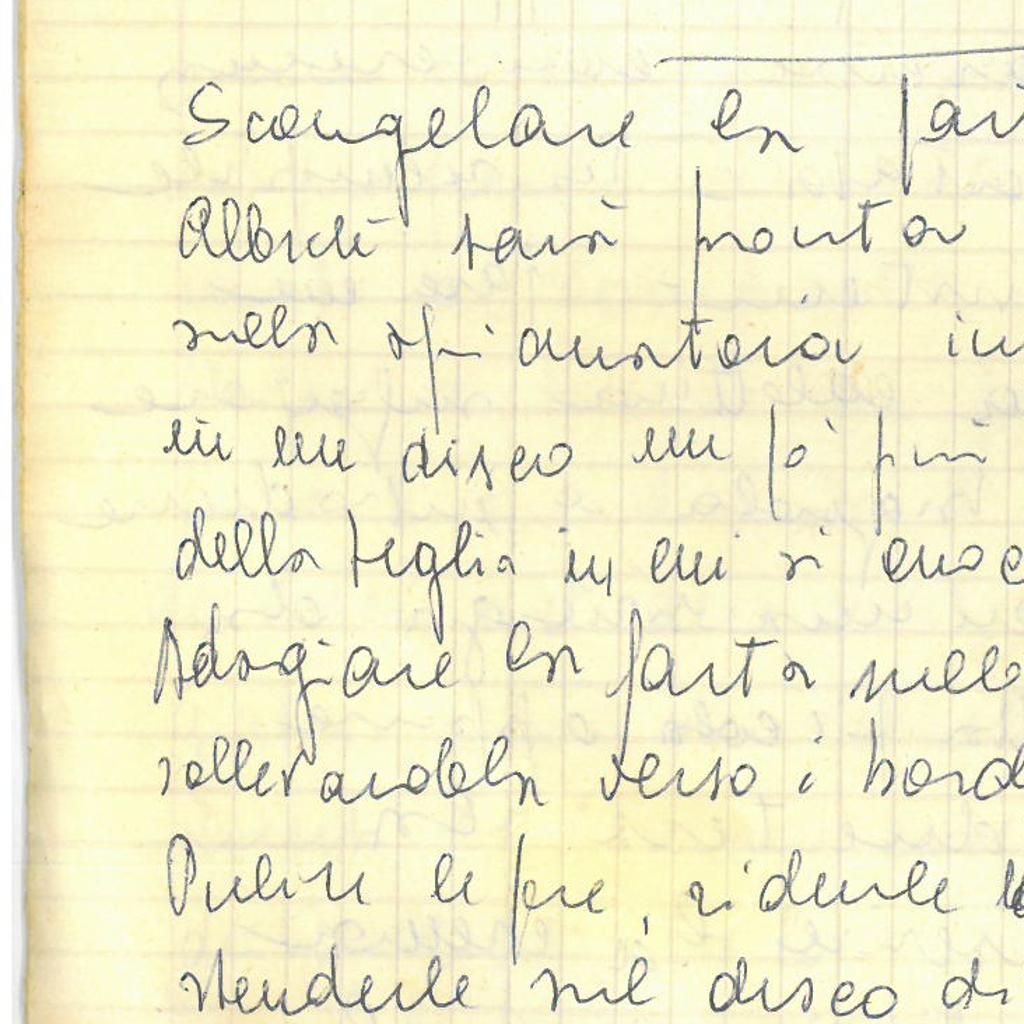 Scongelare la past
Allorché sarà pronta
nella spianatoia in
in un disco un pò più
della teglia in cui si cuoce
Adagiare la pasta nella
sollevandola verso i bordi
Pulire le pere, ridurle
stenderle sul disco di